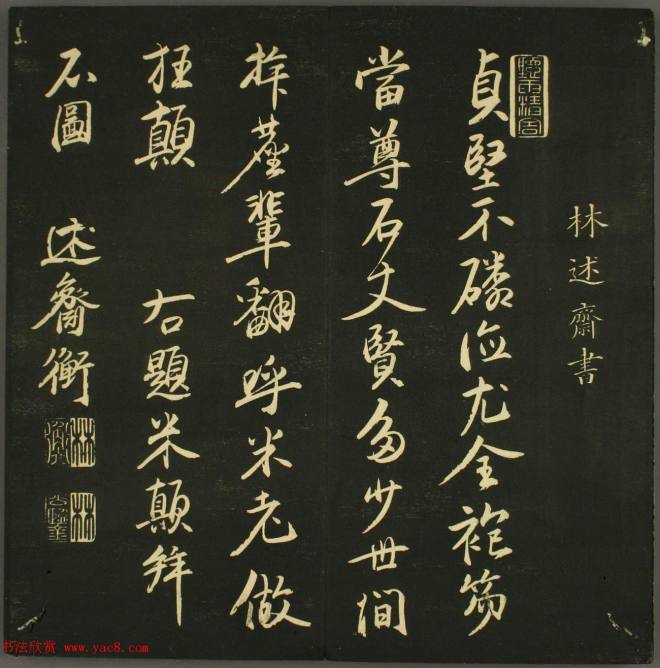 林述齋書
貞堅不磷德尤全袍笏
當尊石丈賢多少世間
拜塵輩翻呼米老做
狂顛　右題米顛拜
石圖　述齋衡
林
林
书法欣赏 www.yac8.com